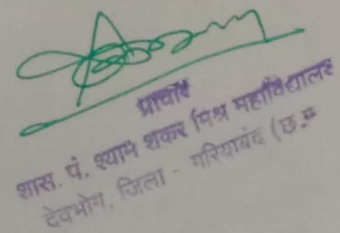 प्राचार्य
शास. पं. श्याम शंकर मिश्र महाविद्यालय
देवभोग, जिला - गरियाबंद (छ.ग